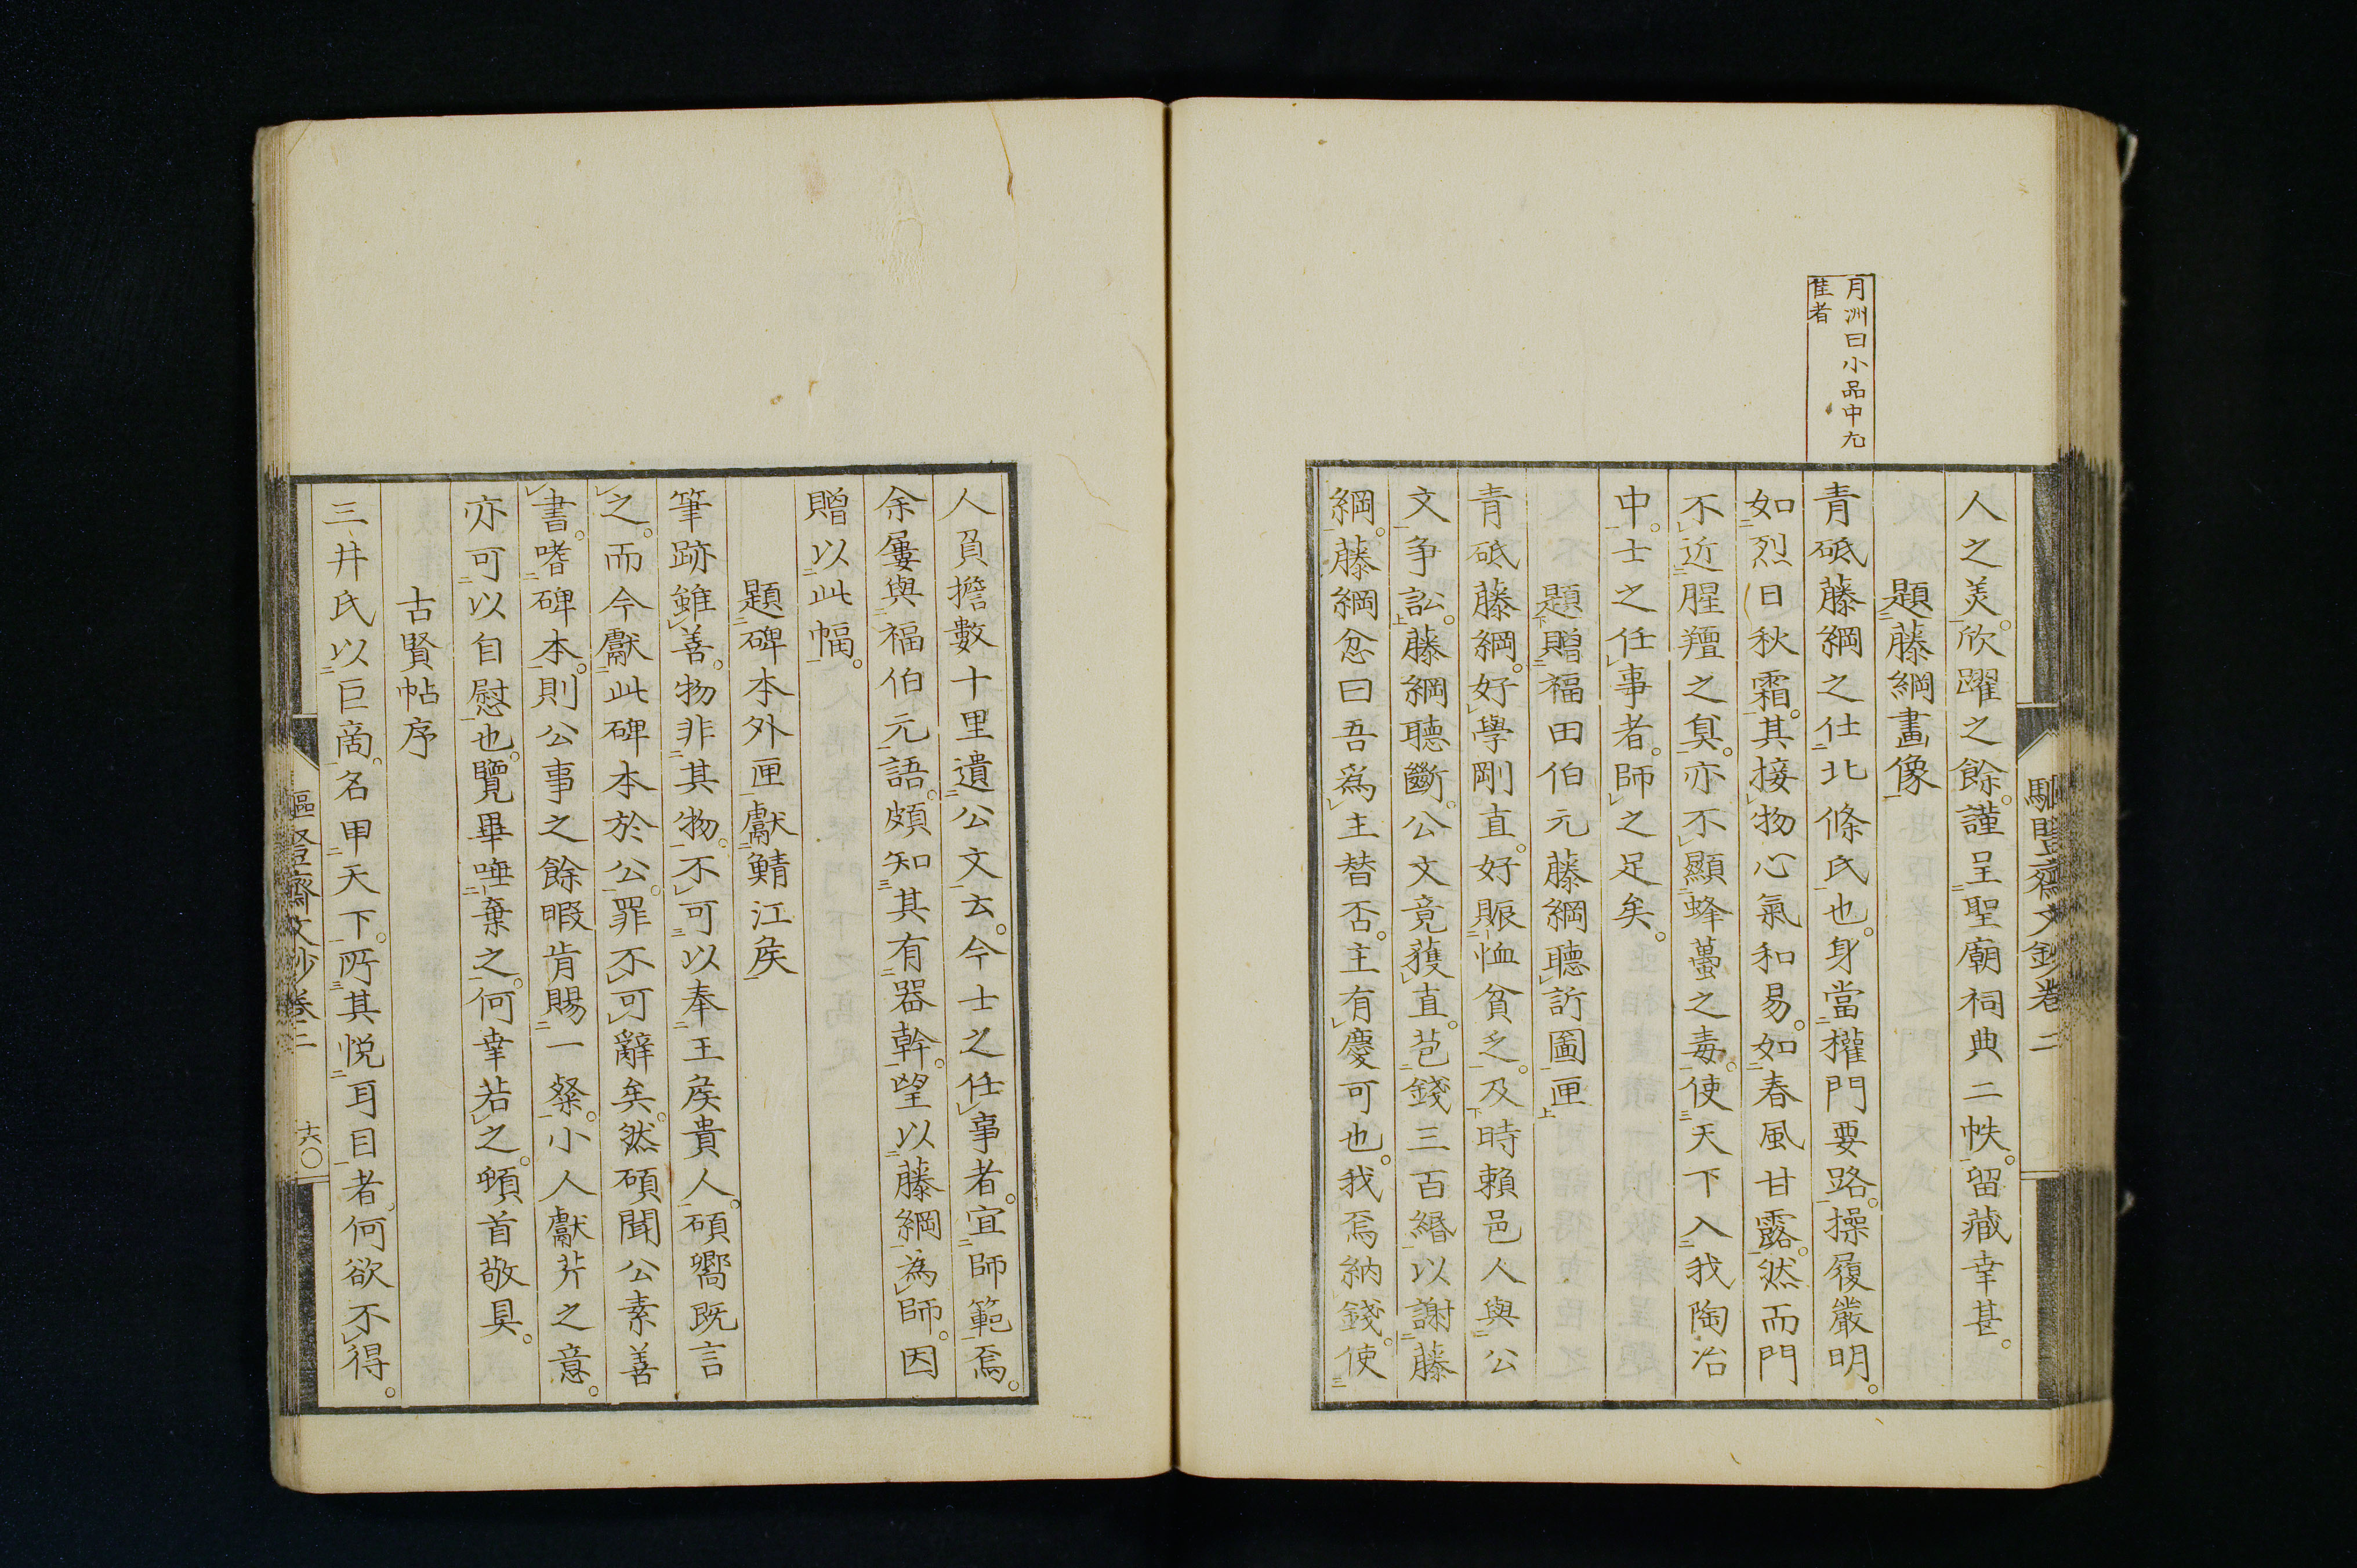 月洲曰小品中尤
佳者
人之美。欣躍之餘。謹呈聖廟祠典二帙。留藏幸甚。
題藤綱畫像
青砥藤綱之仕北條氏也。身當權門要路。操履嚴明。
如烈日秋霜。其接物心氣和易。如春風甘露。然而門
不近腥羶之臭。亦不顯蜂蠆之毒。使天下入我陶冶
中。士之任事者。師之足矣。
題贈福田伯元藤綱聽訴圖匣
青砥藤綱。好學剛直。好賑恤貧乏。及時賴邑人與公
文爭訟。藤綱聽斷。公文竟獲直。苞錢三百緡以謝藤
綱。藤綱忿曰吾爲主替否。主有慶可也。我焉納錢。使
人負擔數十里遺公文去。今士之任事者。宜師範焉。
余屢與福伯元語。頗知其有器幹。望以藤綱爲師。因
贈以此幅。
題碑本外匣獻鯖江矦
筆跡雖善。物非其物。不可以奉王矦貴人。碩嚮既言
之。而今獻此碑本於公。罪不可辭矣。然碩聞公素善
書。嗜碑本。則公事之餘暇肯賜一粲。小人獻芹之意。
亦可以自慰也。覽畢唾棄之。何幸若之。頓首敬具。
古賢帖序
三井氏以巨商。名甲天下。所其悅耳目者。何欲不得。
馴盬齋文鈔卷二
齋文鈔卷二
十六